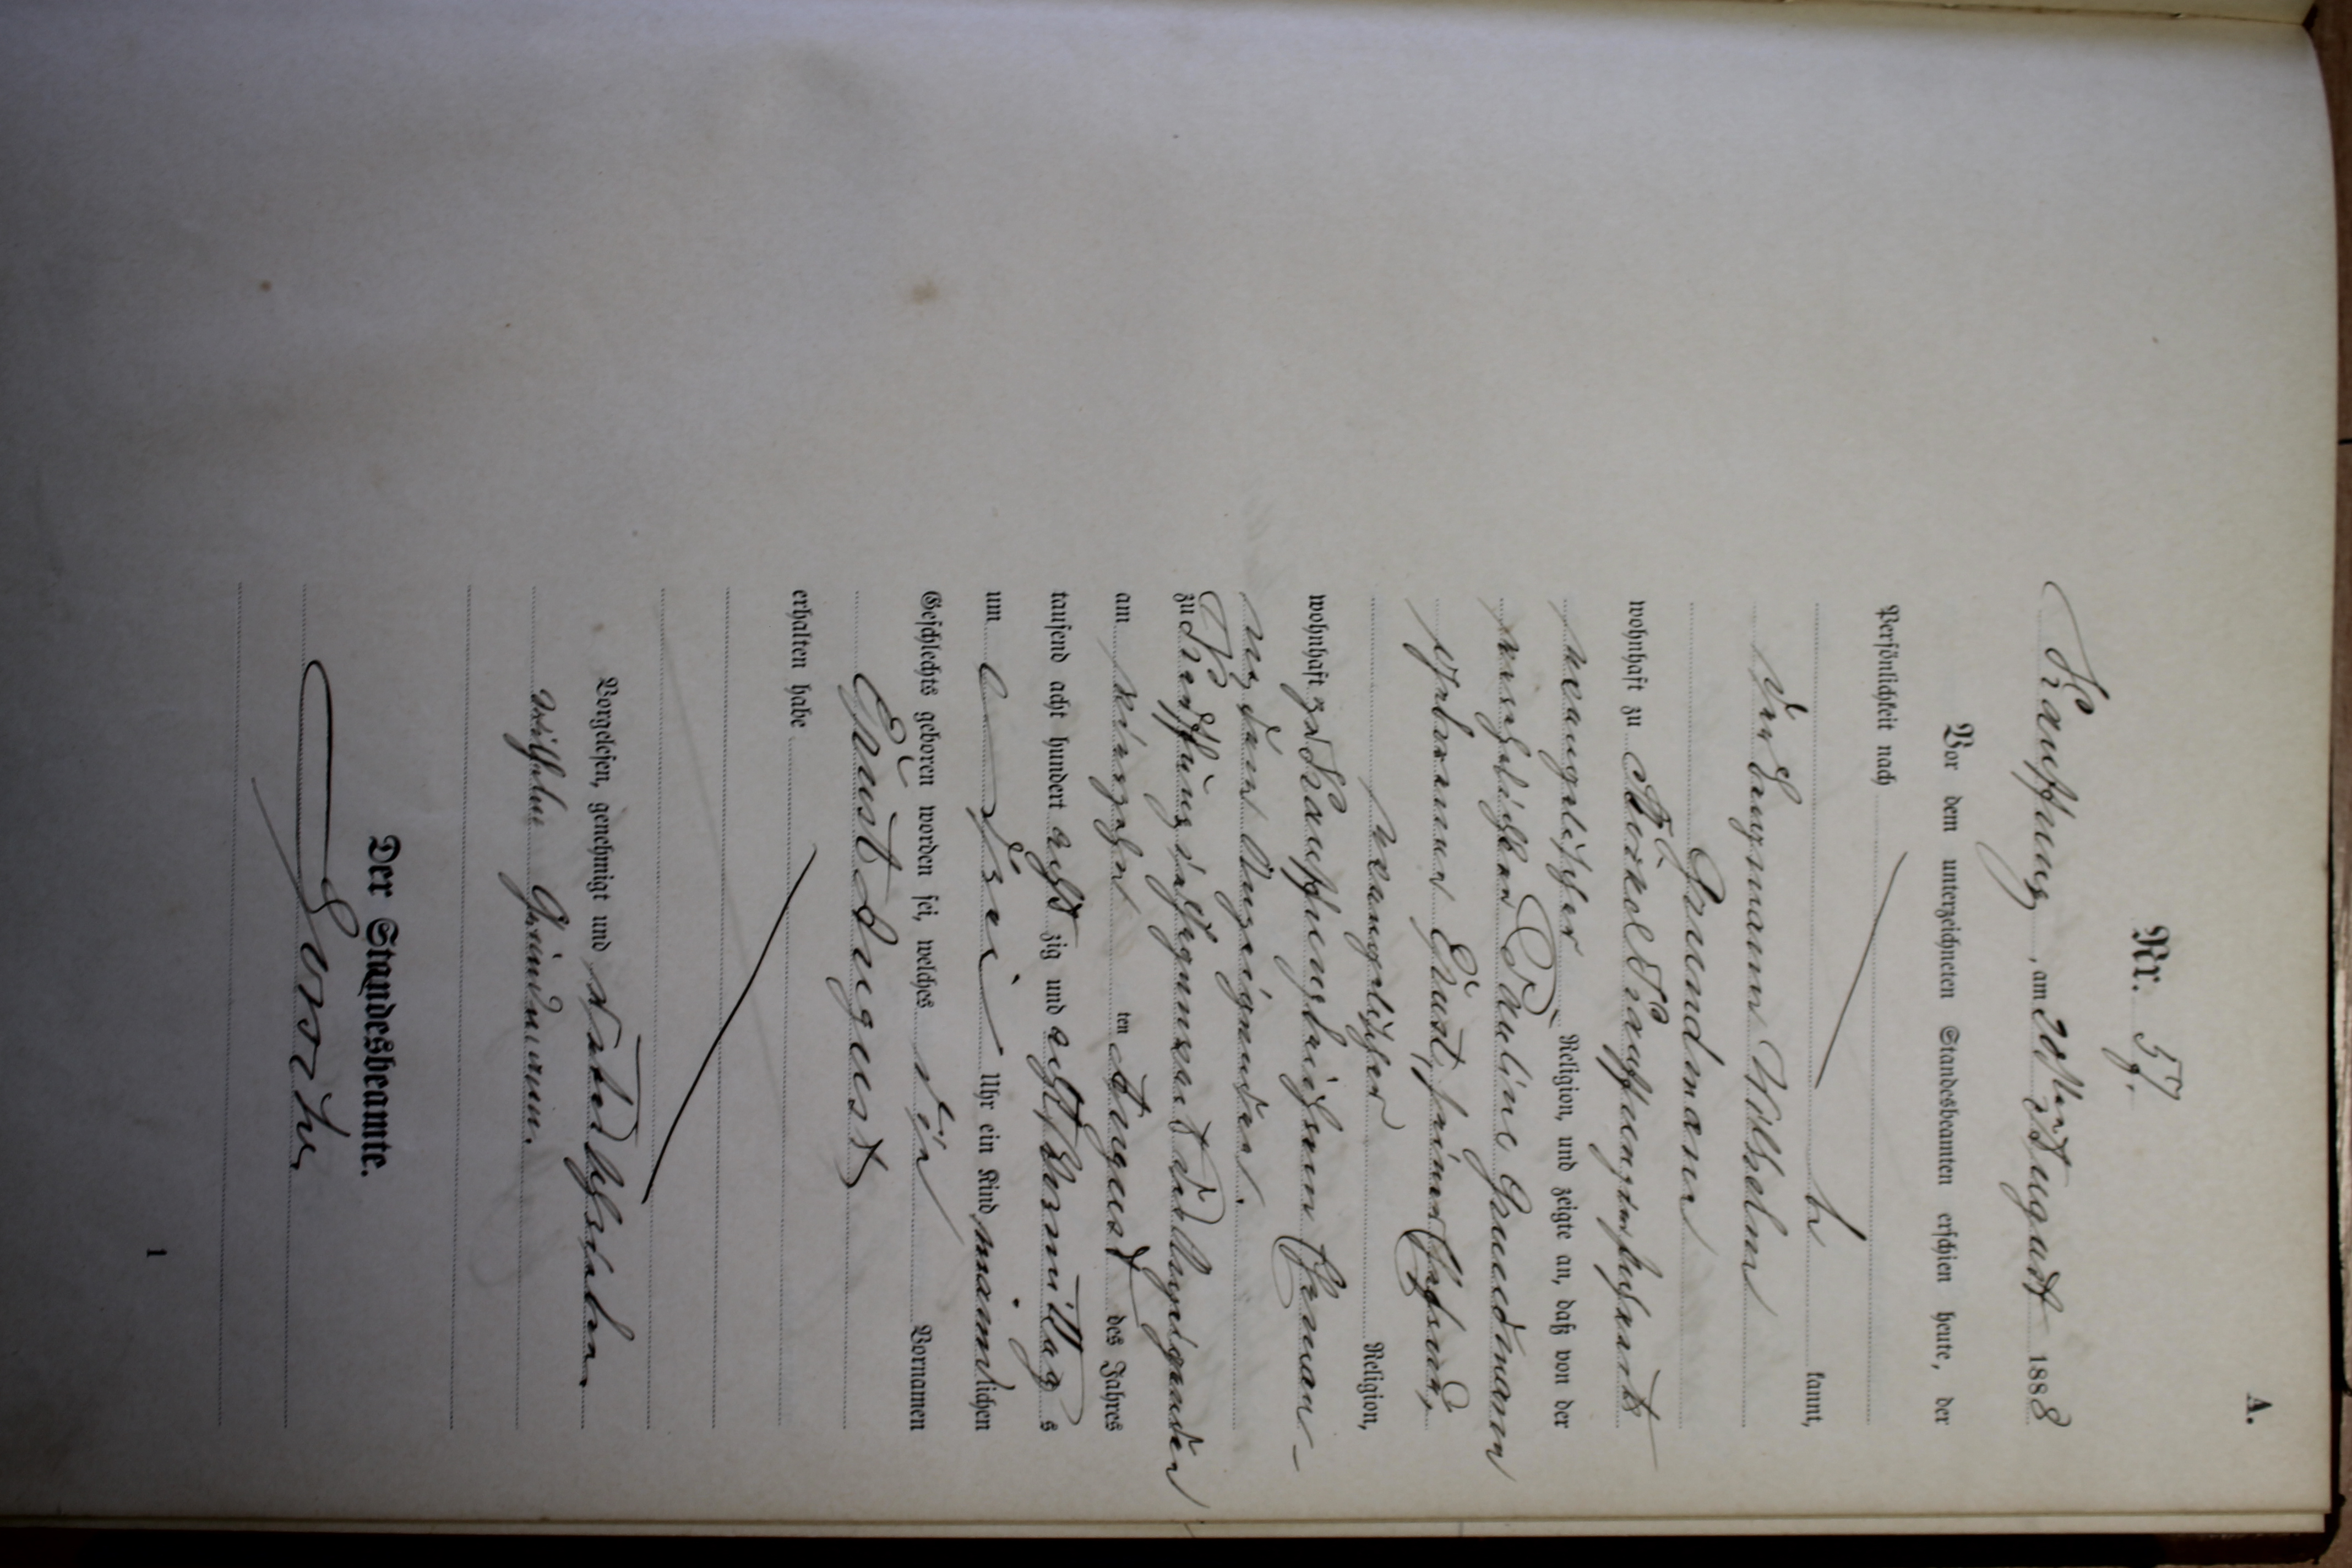 A.
Nr. 57.
Kauffung, am 20ten August 1888
Vor dem unterzeichneten Standesbeamten erschien heute, der
Persönlichkeit nach
be kannt,
der Bergmann Wilhelm
Grundmann
wohnhaft zu Kauffung
evangelischer Religion, und zeigte an, daß von der
Pauline Grundmann
geborenen Ernst, seiner Ehefrau,
evangelischer Religion,
wohnhaft zu Kauffung bei ihrem Eheman-
ne, dem Anzeigenden.
zu Kauffung in Gegenwart des Anzeigenden
am vierzehn ten August des Jahres
tausend acht hundert acht zig und acht Vormittag s
um drei Uhr ein Kind männlichen
Geschlechts geboren worden sei, welches die Vornamen
Ernst August
erhalten habe
Vorgelesen, genehmigt und unterschrieben
Wilhelm Grundmann.
Der Standesbeamte.
1